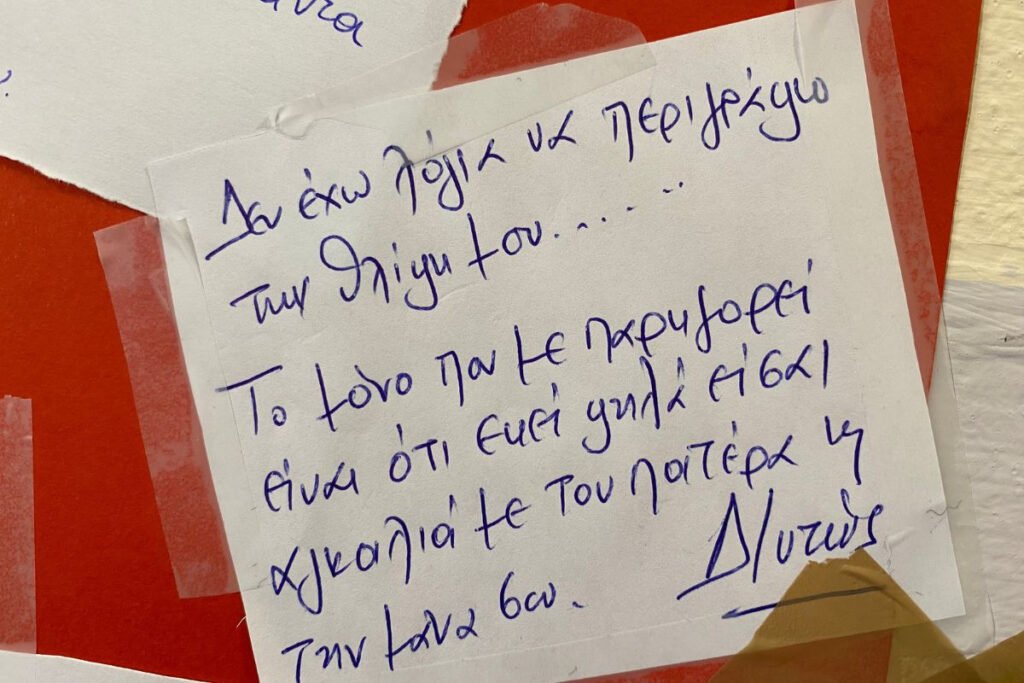 Δεν έχω λόγια να περιγράψω
την θλίψη μου.......
Το μόνο που με παρηγορεί
είναι ότι εκεί ψηλά είσαι
αγκαλιά με τον πατέρα κ
την μάνα σου.